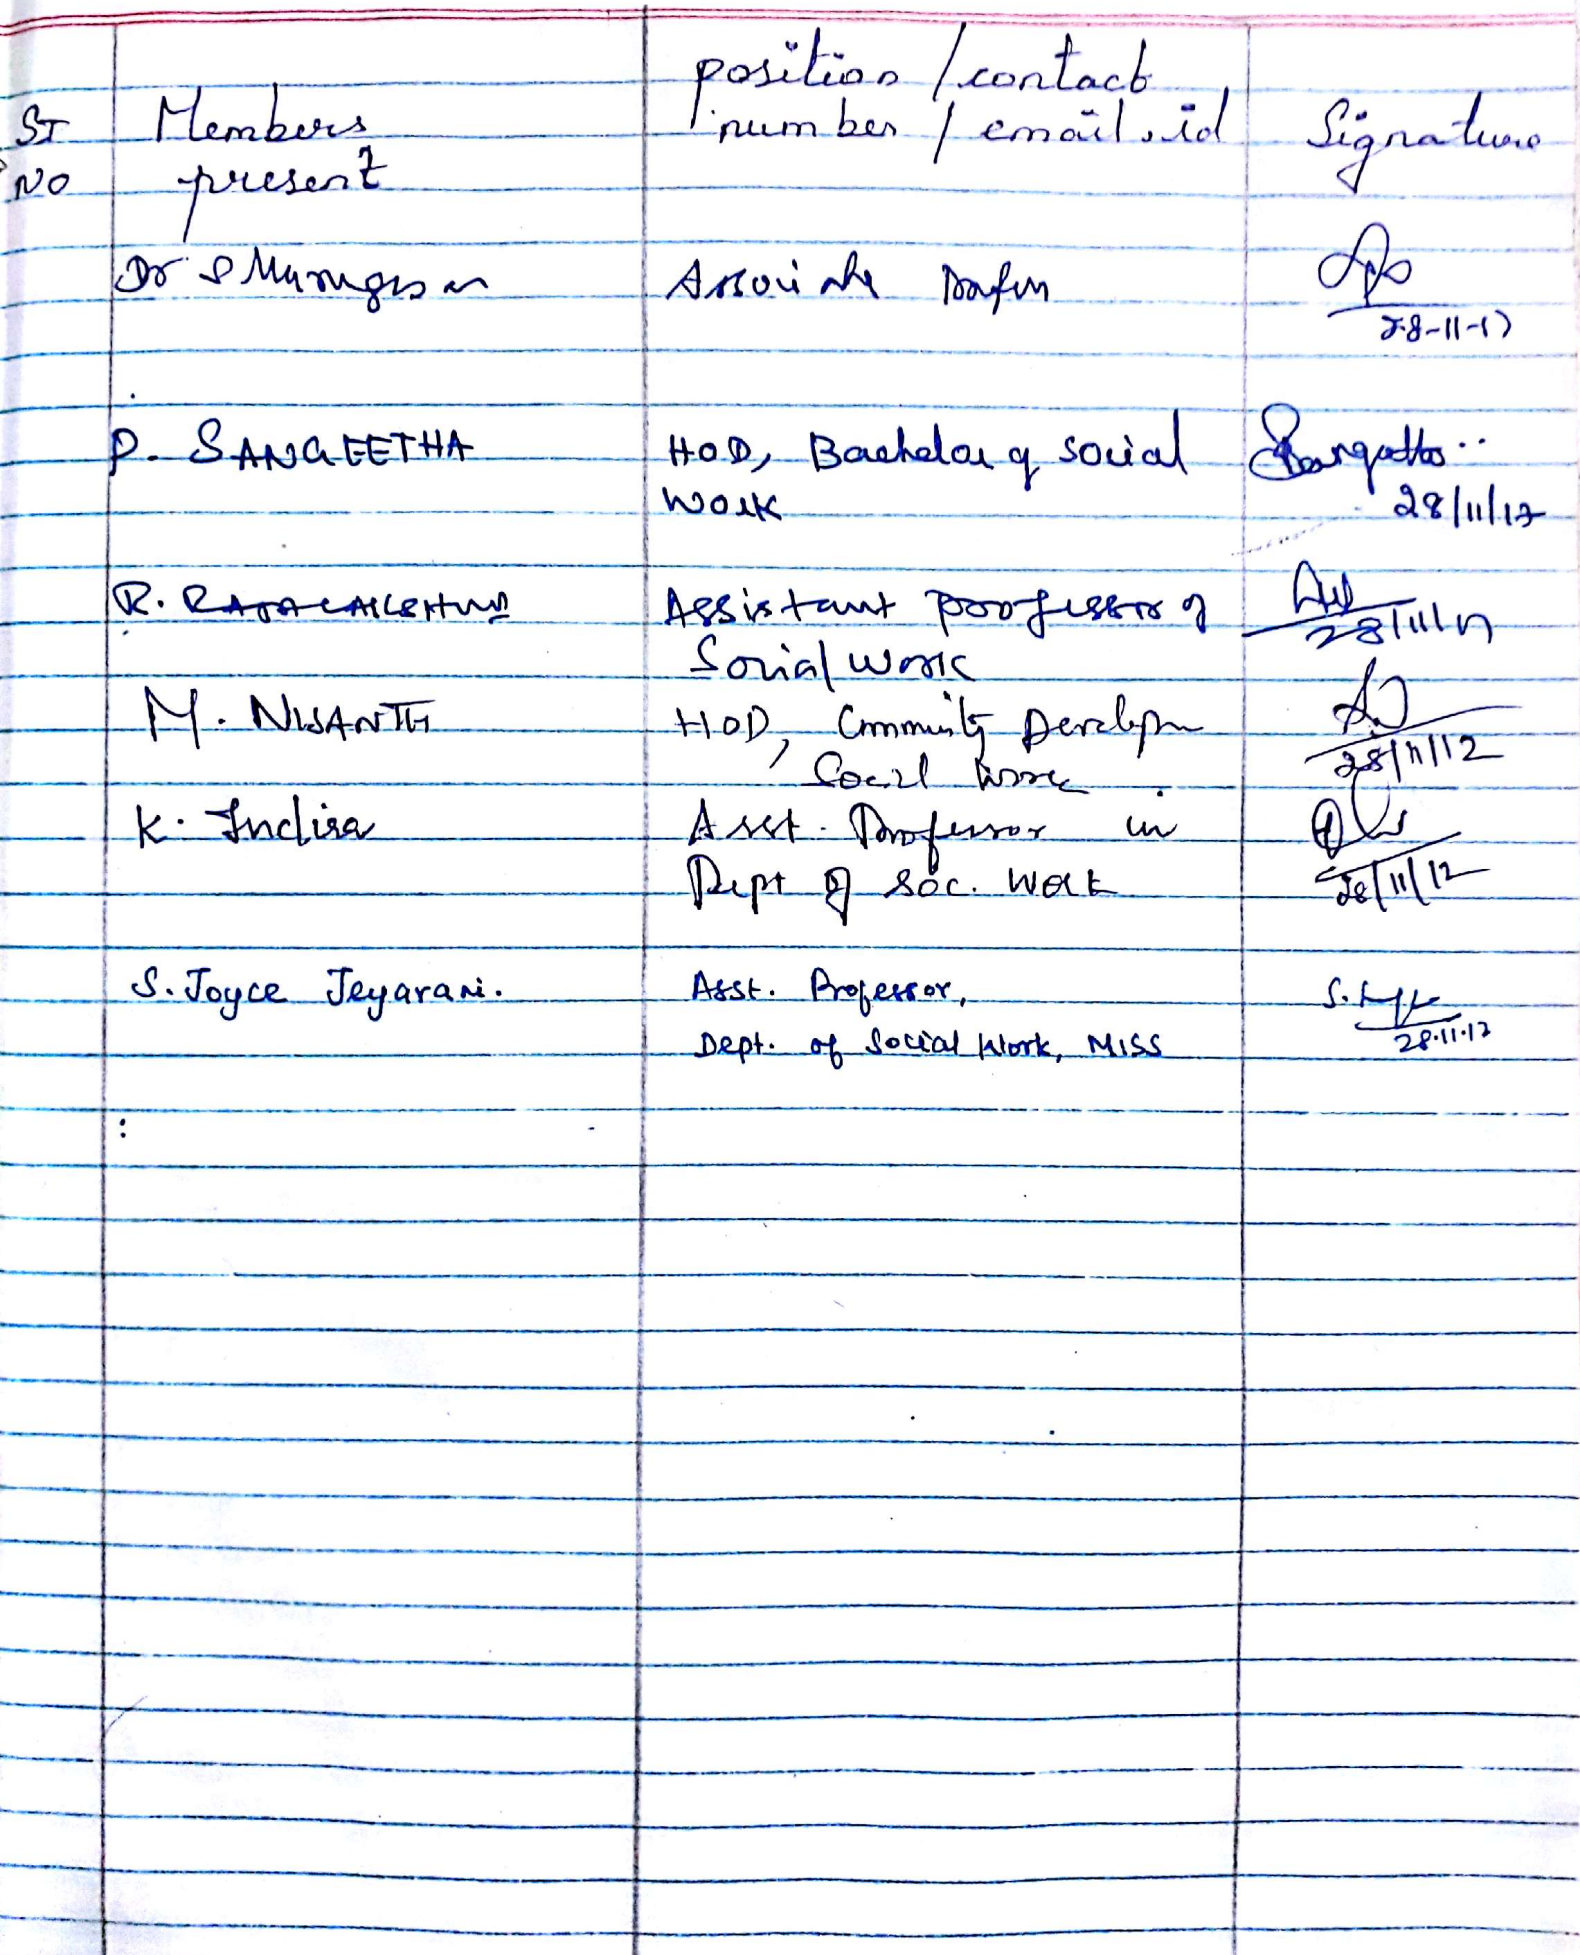 position / contact
Sl Members number / email.id Signature
No present
Dr S Murugesan Associate Profen
28-11-17
P. SANGEETHA HOD, Bachelor of Social
Work 28/11/17
R. RAJALAKSHMI Assistant professor of
28/11/17
Social Work
M. NISANTH HOD, Community Develpm
Social Work 28/11/17
K. Indira Asst. Professor in
Dept of Soc. Work 28/11/17
S. Joyce Jeyarani. Asst. Professor,
Dept. of Social Work, MISS 28.11.17